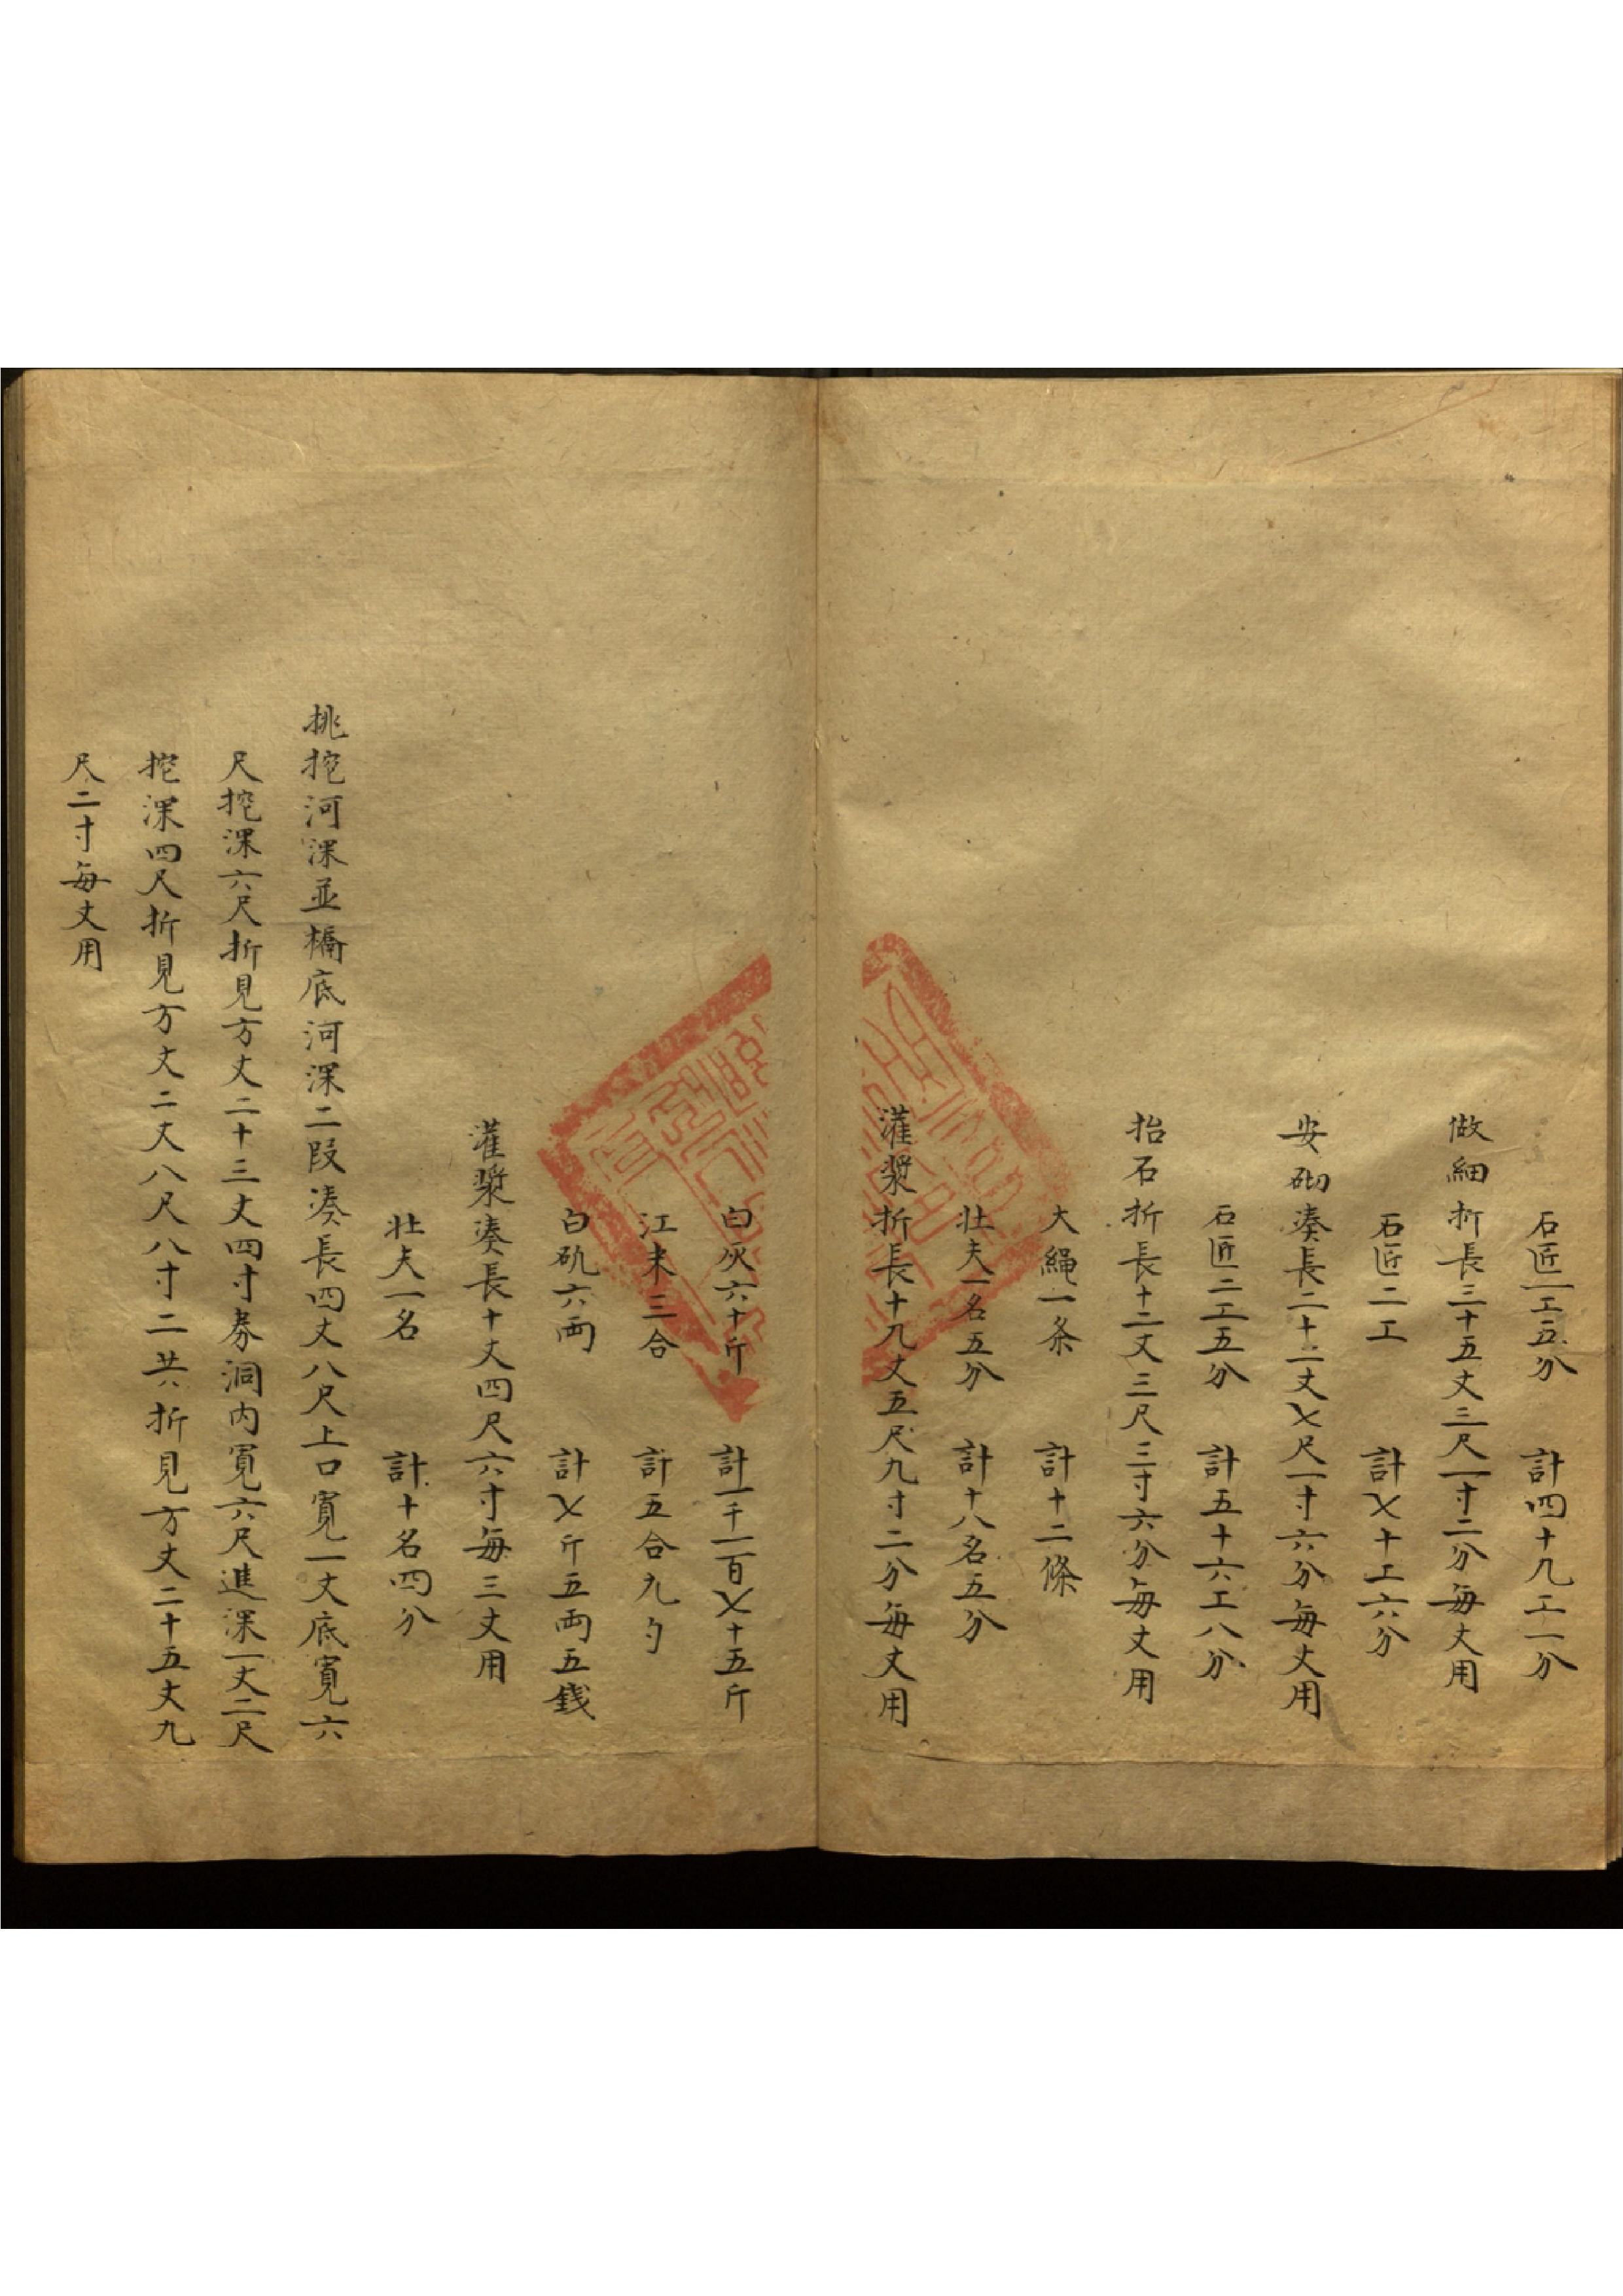 石匠一工五分　計四十九工一分
做細折長三十五丈三尺一寸二分每丈用
石匠二工　計七十工六分
安砌湊長二十二丈七尺一寸六分每丈用
石匠二工五分　計五十六工八分
抬石折長十二丈三尺三寸六分每丈用
大繩一条　計十二條
壯夫一名五分　計十八名五分
灌漿折長十九丈五尺九寸二分每丈用
白灰六十斤　計一千一百七十五斤
江米三合　計五合九勺
白矾六両　計七斤五両五錢
灌漿湊長十丈四尺六寸每三丈用
壯夫一名　計十名四分
挑挖河深並橋底河深二段湊長四丈八尺上口寛一丈底寛六
尺挖深六尺折見方丈二十三丈四寸券洞内寛六尺進深一丈二尺
挖深四尺折見方丈二丈八尺八寸二共折見方丈二十五丈九
尺二寸每丈用